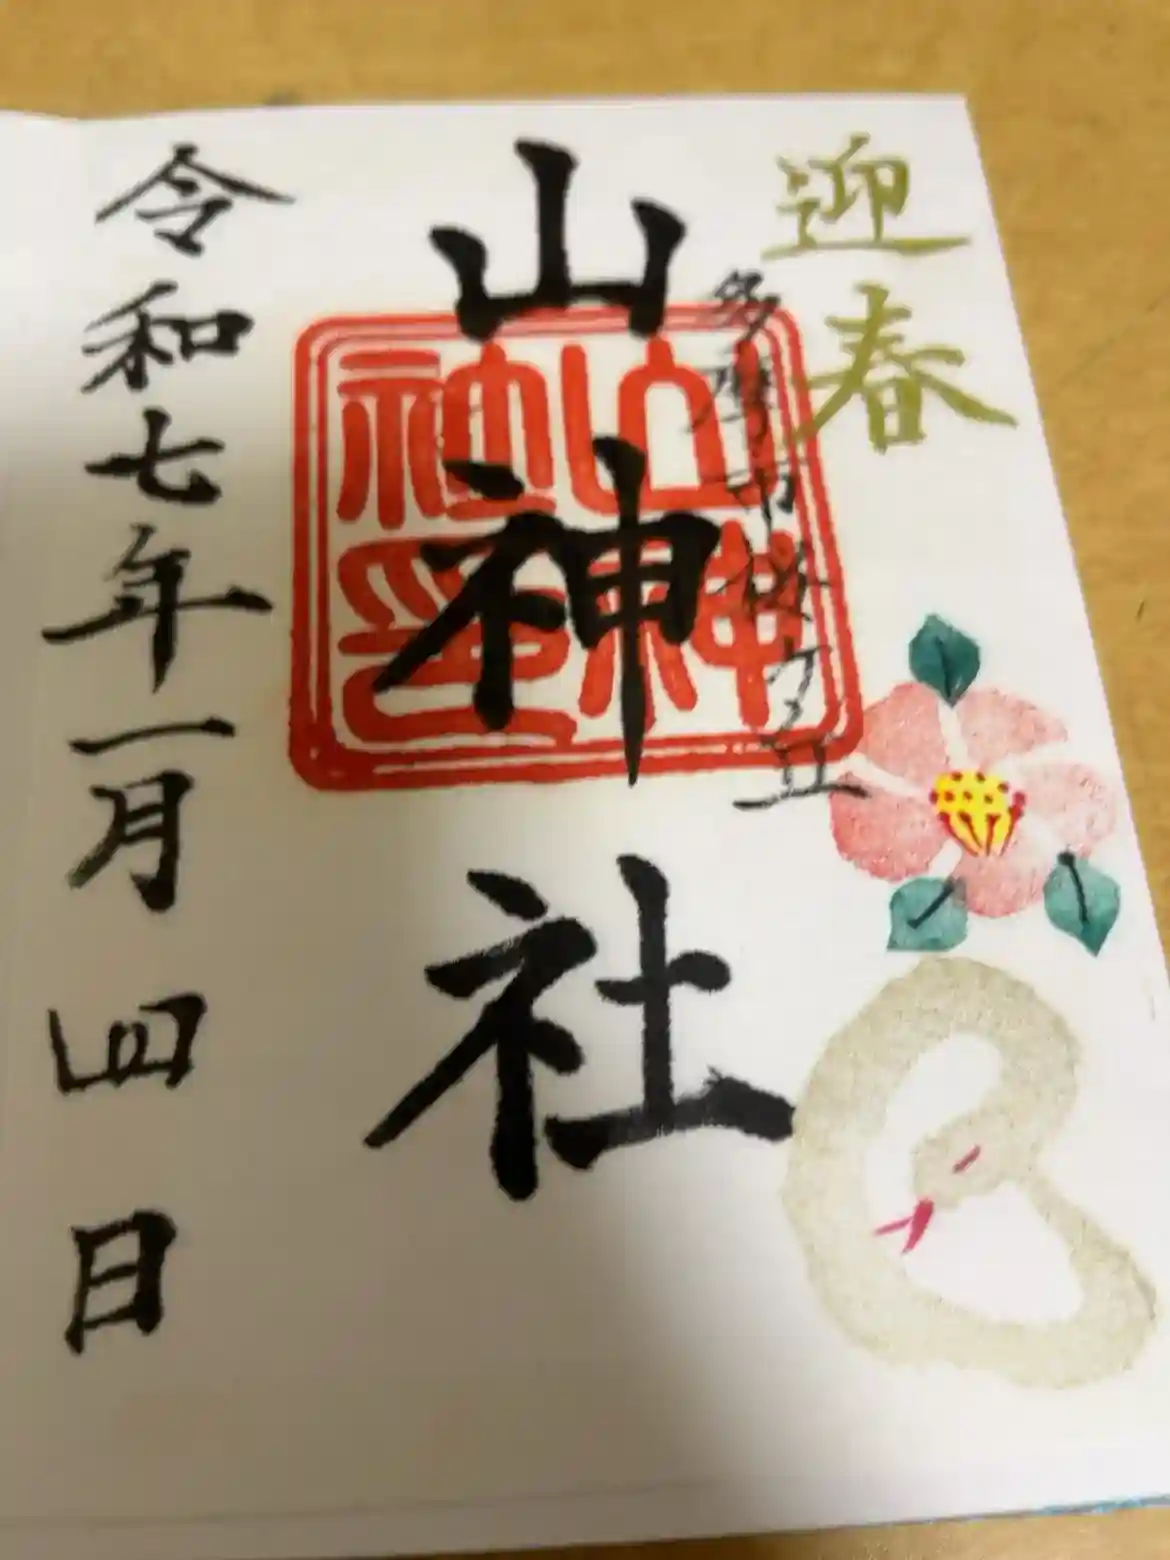 迎春
多摩市桜ヶ丘
山神社
山神社印
令和七年一月四日